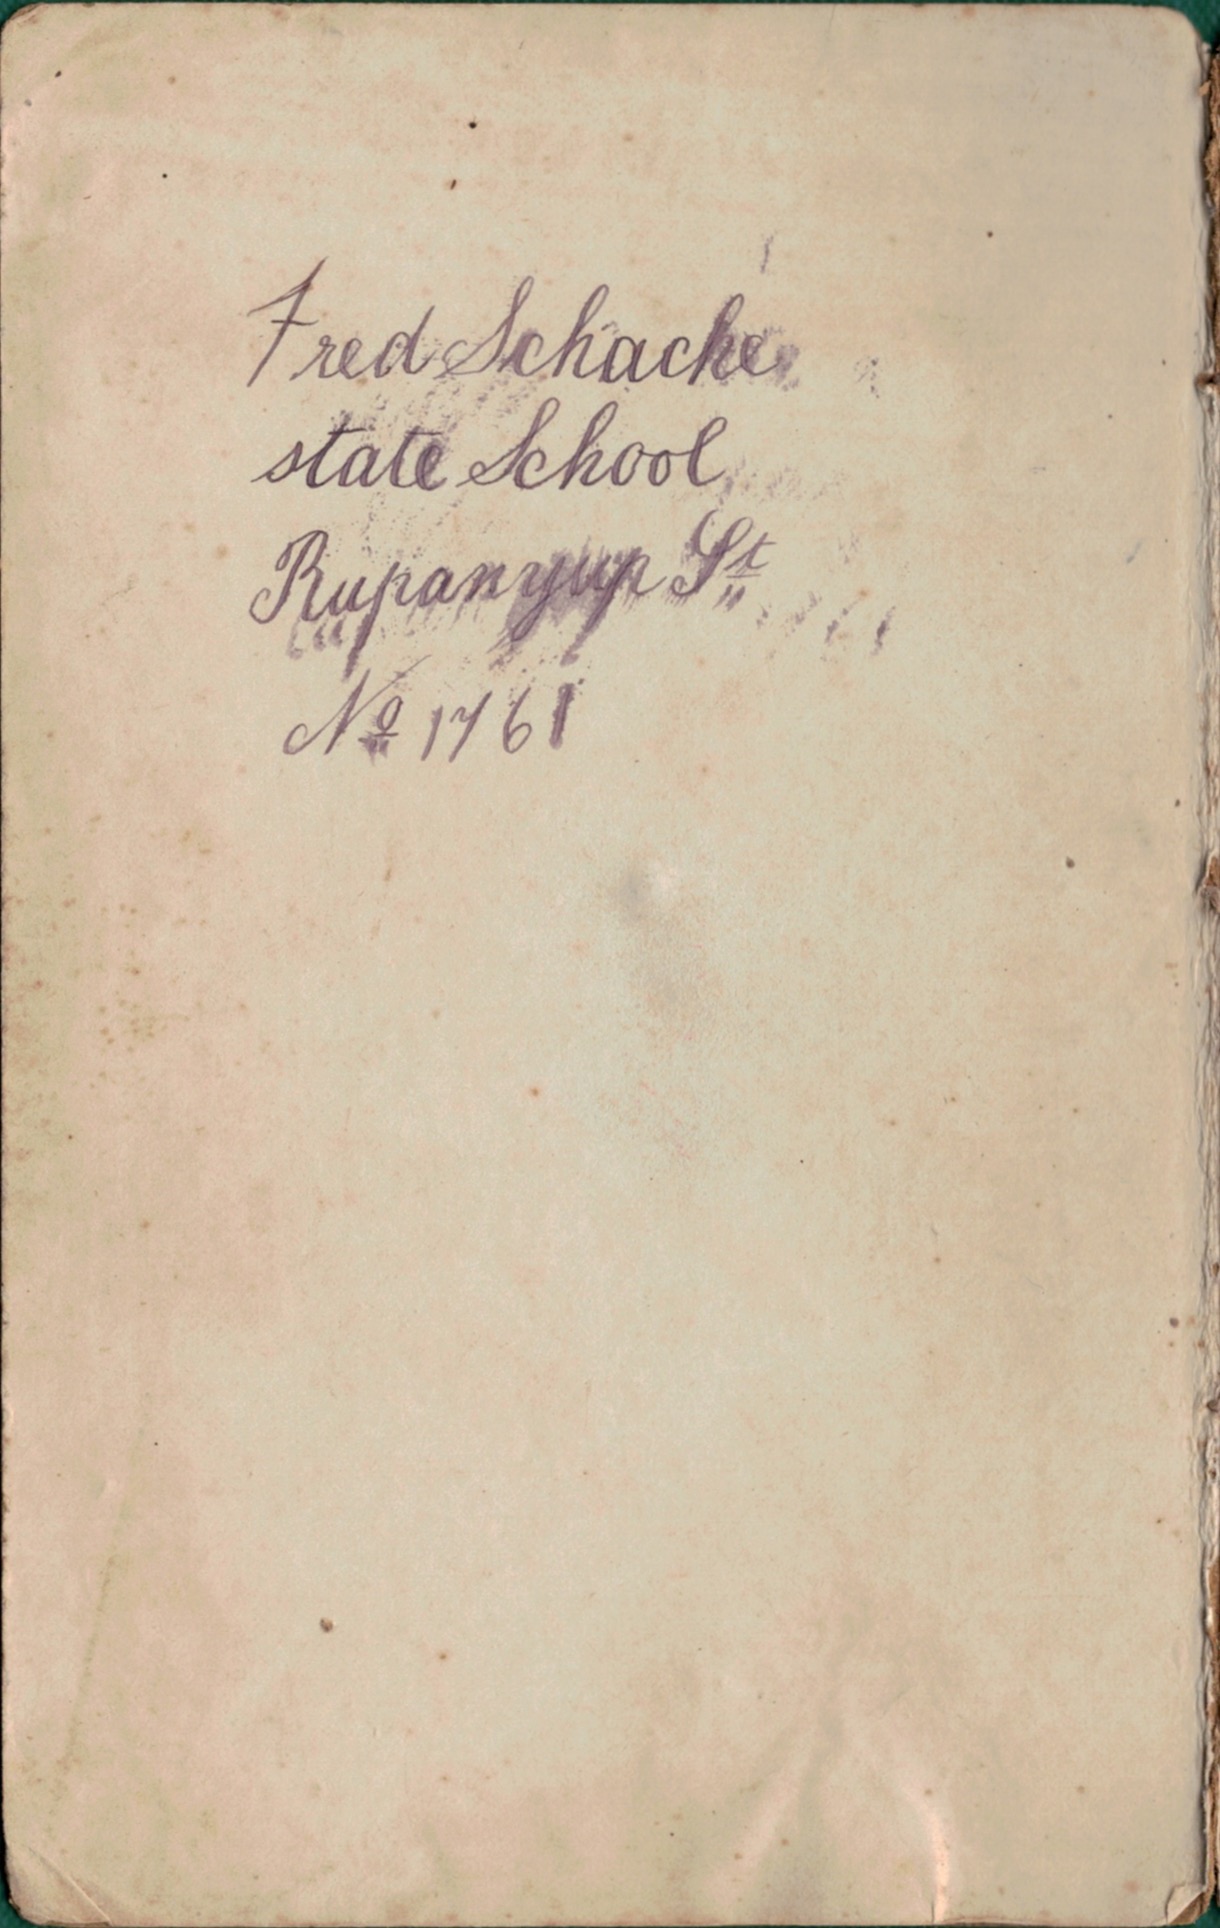 Fred Schache
state School
Rupanyup St
No 1761